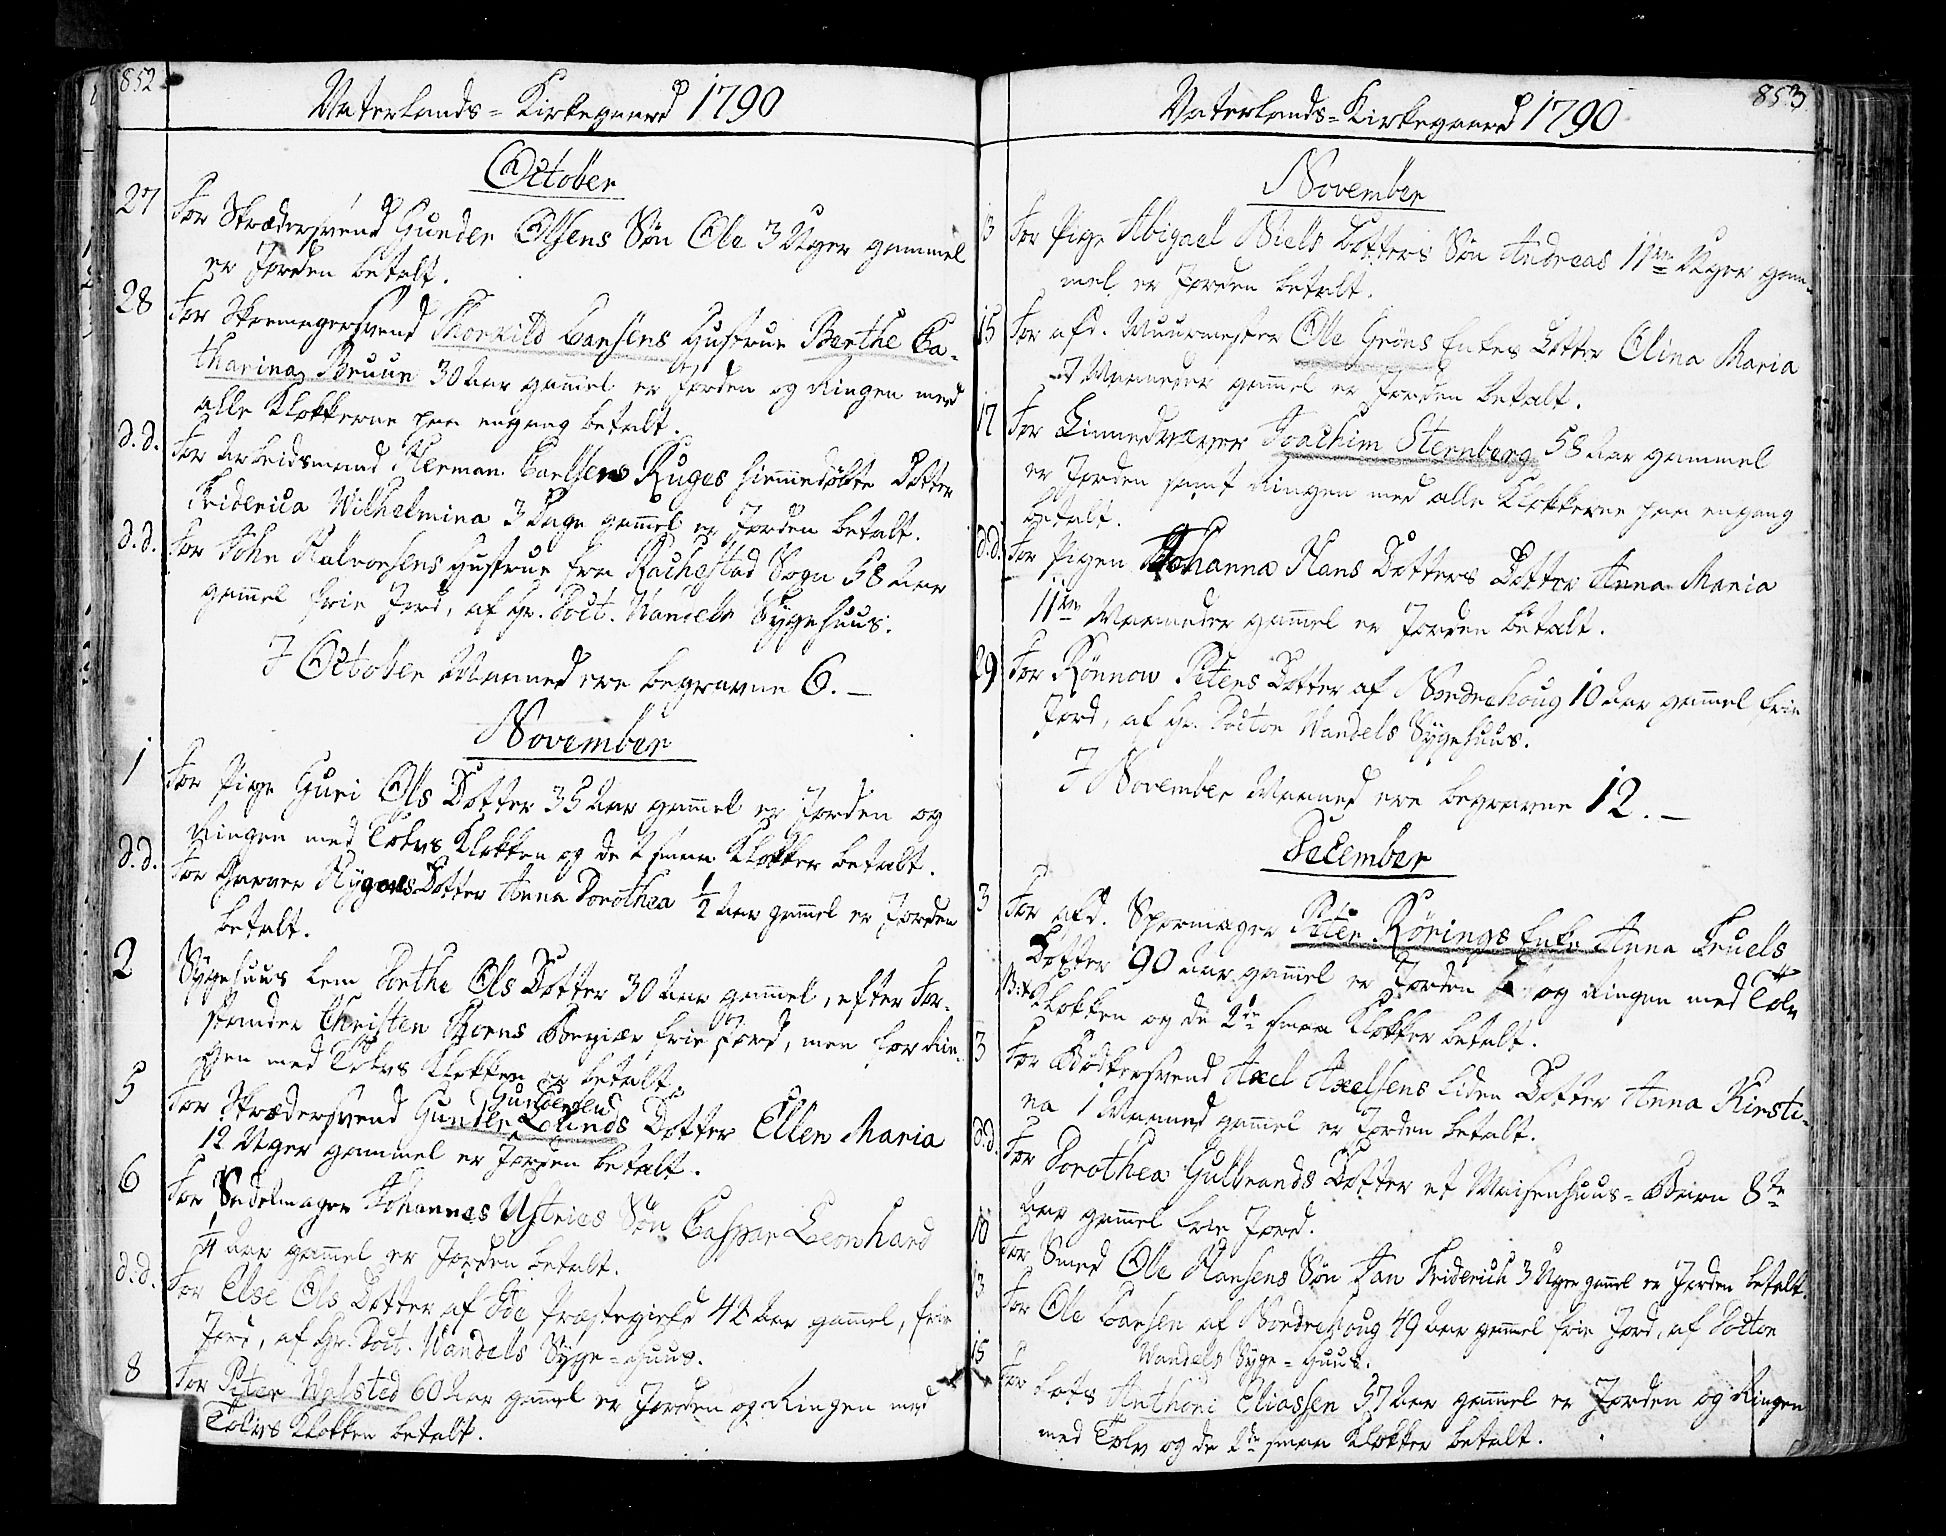 852
Vaterlands-Kirkegaard 1790
October
27 For Skrædersvend Gunder Olsens Søn Ole 3 Uger gammel
er Jorden betalt.
28 For Skomagersvend Thorkild Larsens Hustrue Berthe Ca-
tharina Bruun 30 Aar gam̄el er Jorden og Ringen med
alle Klokkerne paa engang betalt.
d.d. For Arbeidsmand Herman Carlsen Ruges hiemmedøbte Dotter
Friderica Wilhelmina 3 Dage gam̄el er Jorden betalt.
d.d. For John Halvorsens Hustrue fra Rachestad Sogn 58 Aar
gam̄el frie Jord, af Hr. Doct. Wandels Sygehuus.
I October Maaned ere begravne 6.
November
1 For Pige Guri Ols Dotter 35 Aar gam̄el er Jorden og
Ringen med Tolvs Klokken og de 2 smaa Klokker betalt.
d.d. For Garver Dotter Anna Dorothea 1/2 Aar gam̄el er Jorden
betalt.
2 Sygehuus Lem Dorthe Ols Dotter 30 Aar gam̄el, efter For-
stander Christen Horns Begiær frie Jord, men for Rin-
gen med Tolvs Klokken er betalt.
Gundersen
5 For Skrædersvend Gunder Dotter Ellen Maria
12 Uger gammel er Jorden betalt.
6 For Sadelmager Johannes Ustries Søn Caspar Leonhard
1/4 Aar gam̄el er Jorden betalt.
d.d. For Else Ols Dotter af Ide Præstegield 42 Aar gam̄el, frie
Jord, af Hr. Doct. Wandels Syge-Huus.
8 For Peter Walsted 60 Aar gam̄el er Jorden og Ringen med
Tolvs Klokken betalt.
853
Vaterlands-Kirkegaard 1790
November
13 For Pige Abigael Niels Dotters Søn Andreas 11ve Uger gam-
mel er Jorden betalt.
15 For afd. Muurmester Ole Gröns Enkes Dotter Olina Maria
7 Maaneder gam̄el er Jorden betalt.
17 For Linnedvæver Joachim Sternberg 58 Aar gammel
er Jorden samt Ringen med alle Klokkerne paa engang
betalt.
d.d. For Pigen Johanna Hans Dotters Dotter Anna Maria
11ve Maaneder gam̄el er Jorden betalt.
29 For Rönnow Peters Dotter af Nordrehoug 10 Aar gam̄el frie
Jord, af Hr. Doctor Wandels Sygehuus.
I November Maaned ere begravne 12.
December
3 For afd. Spormager Peter Rörings Enke Anna Truels
Dotter 90 Aar gam̄el er Jorden og Ringen med Tolv
Klokken og de 2de smaa Klokker betalt.
3 For Bødkersvend Axel Axelsens liden Dotter Anna Kirsti-
na 1 Maaned gam̄el er Jorden betalt.
d.d. For Dorothea Gulbrands Dotter et Waisenhuus-Beirn 8te
Aar gam̄el frie Jord.
10 For Smed Ole Hansens Søn Jan Friderich 3 Uger gam̄el er Jorden betalt.
13 For Ole Larsen af Nordrehoug 49 Aar gam̄el frie Jord, af Doctor
Wandels Syge-Huus.
15 For Lots Anthoni Eliassen 37 Aar gam̄el er Jorden og Ringen
med Tolv og de 2de smaa Klokker betalt.